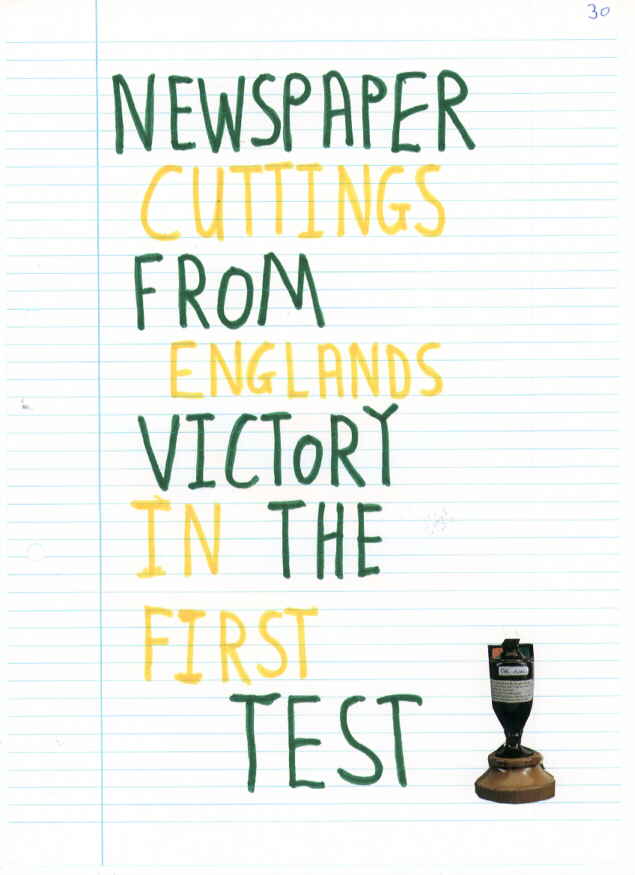 30
NEWSPAPER
CUTTINGS
FROM
ENGLANDS
VICTORY
IN THE
FIRST
TEST